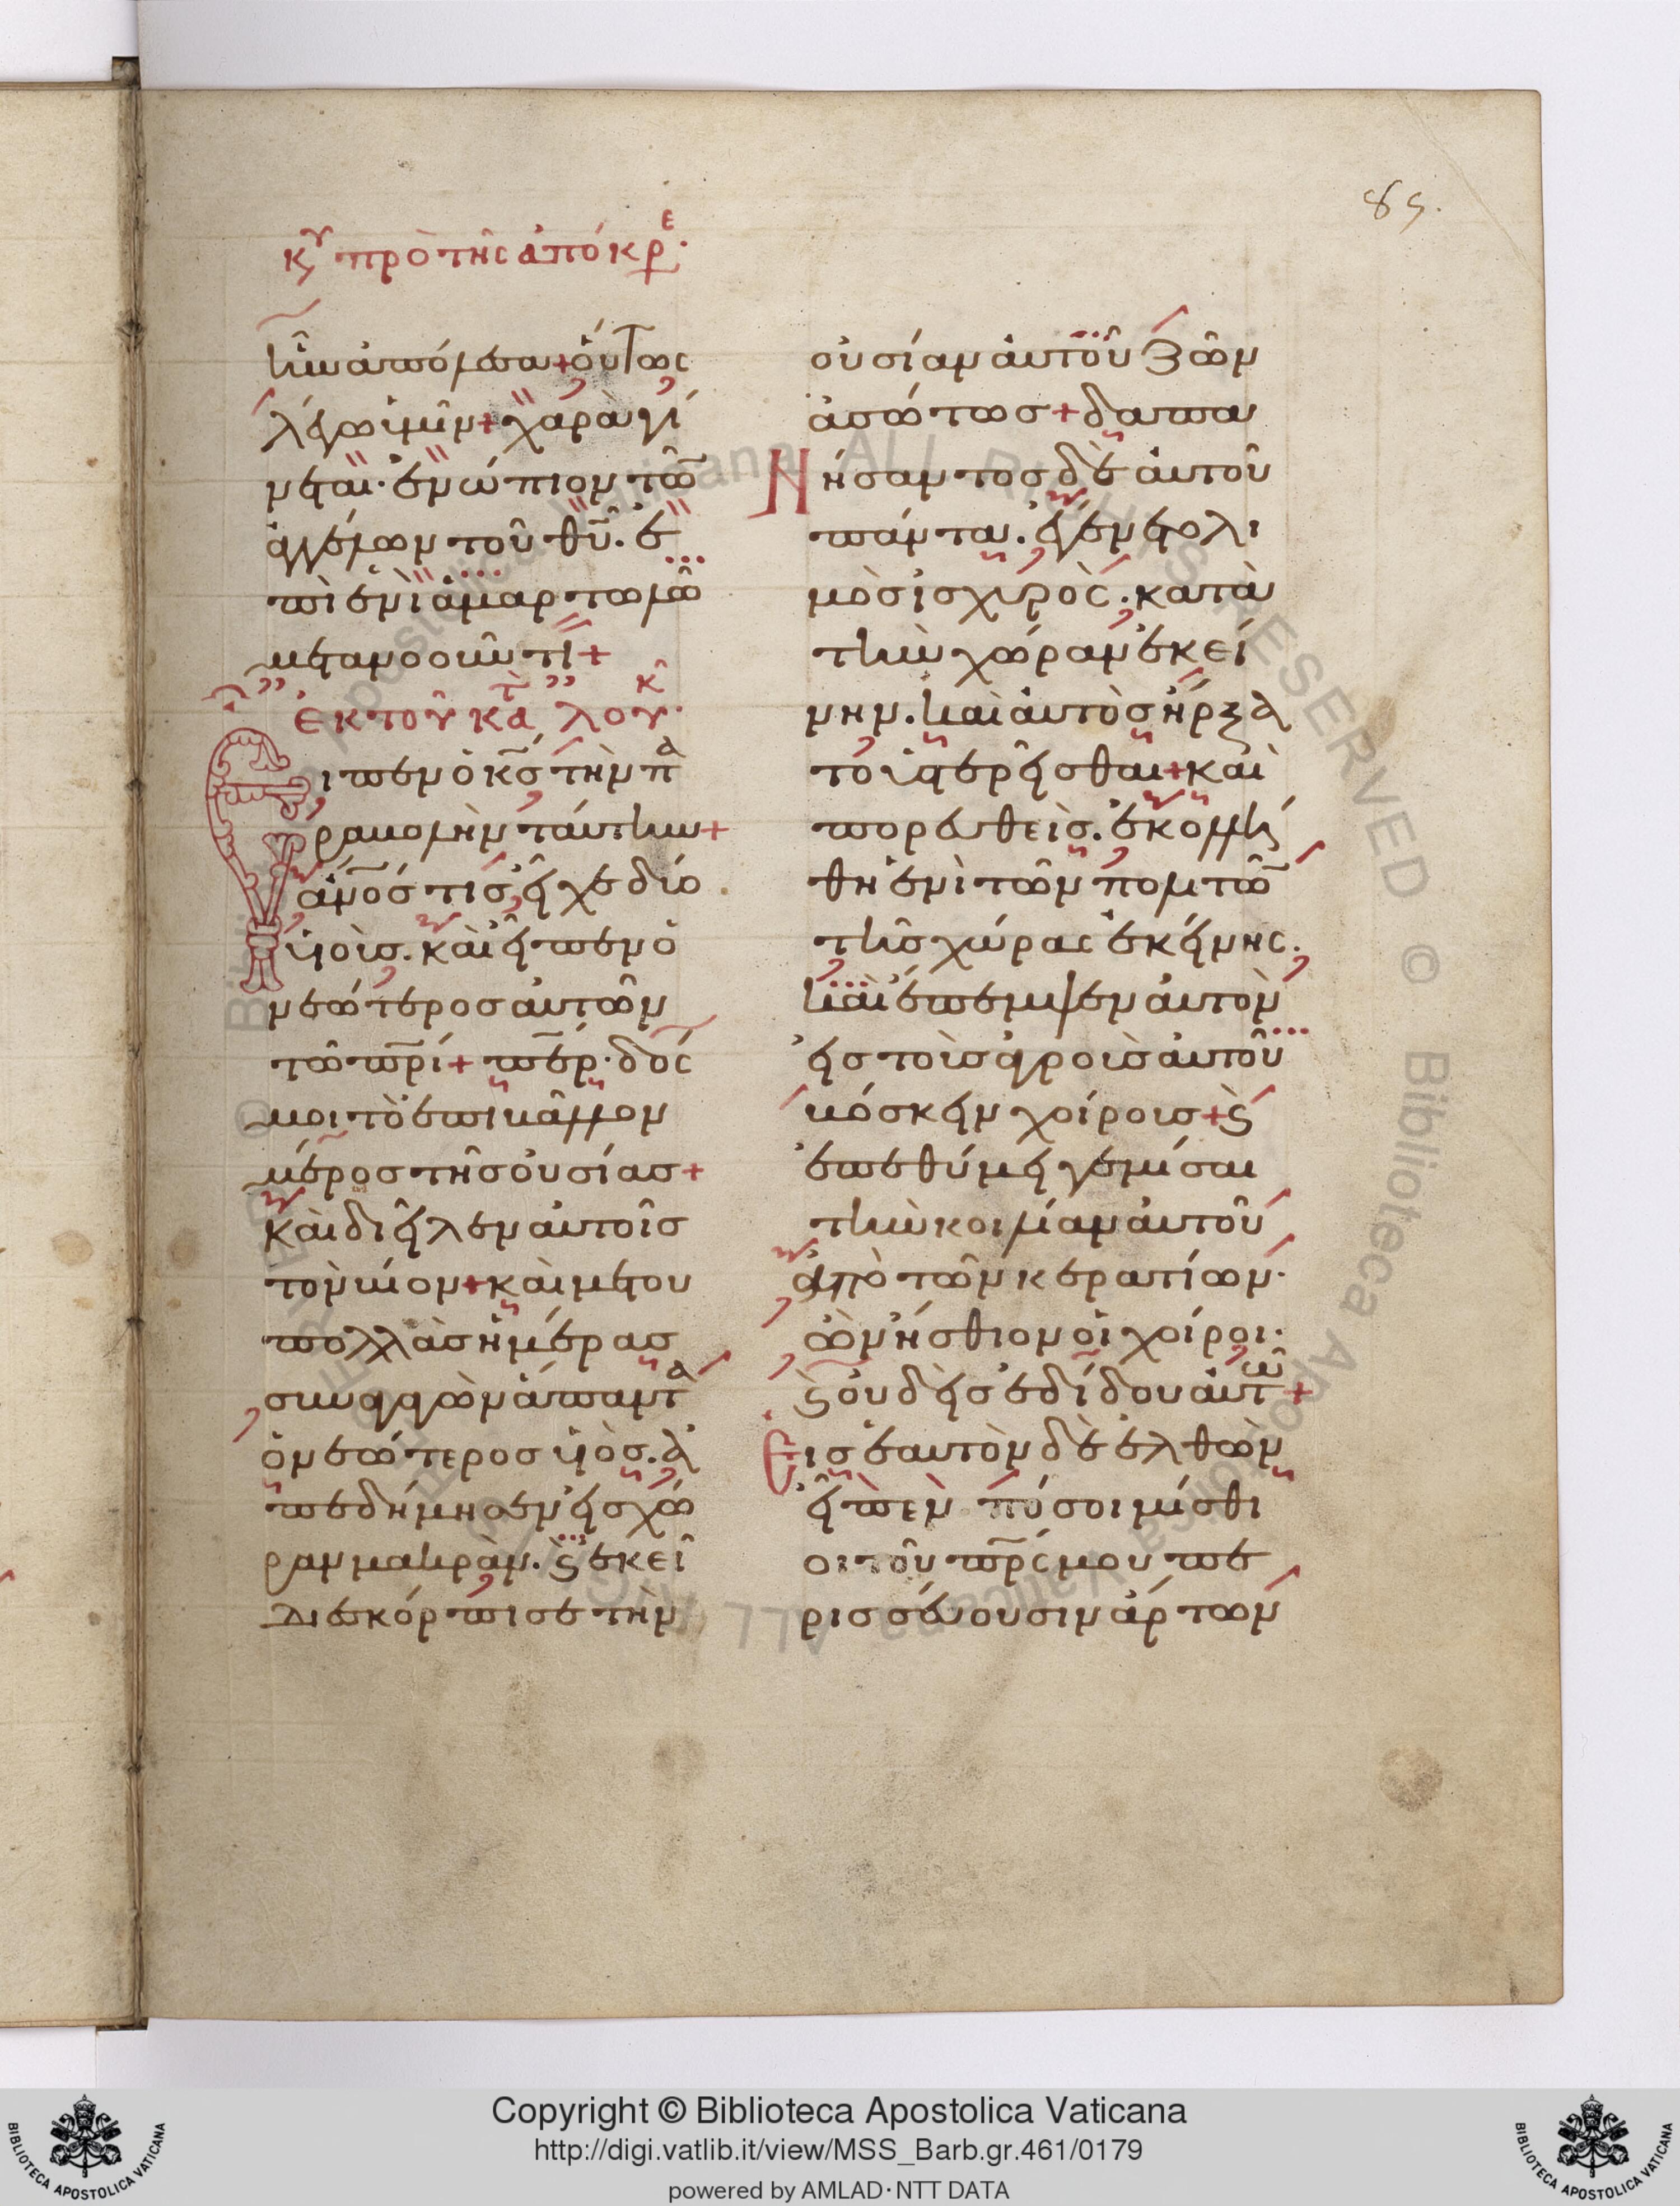 85.
κυ πρὸ τῆς ἀπόκρε·
ἣν ἀπόλεσα+ οὕτως
λέγω ὑμῖν+ χαρὰ γί
νεται· ἐνώπιον τῶν
ἀγγέλων τοῦ θῦ. ἐ
πὶ ἑνὶ ἁμαρτωλῶ
μετανοοῦντι+
ἐκ τοῦ κατὰ λουκ·
Εἶπεν ὁ κς τὴν πα
ραβολὴν ταύτην+
ἀνός τις εἶχε δύο
υἱοὺς. καὶ εἶπεν ὁ
νεώτερος αὐτῶν
τῶ πρί+ πέρ· δός
μοι τὸ ἐπιβάλλον
μέρος τῆς οὐσίας+
καὶ διεῖλεν αὐτοῖς
τὸν βίον+ καὶ μετ οὐ
πολλὰς ἡμέρας
συναγαγὼν ἅπαντα
ὁ νεώτερος υἱὸς. ἀ
πεδήμησεν εἰς χώ
ραν μακρὰν. κ ἐκεῖ
διεσκόρπισε τὴν
οὐσίαν αὐτοῦ ζῶν
ἀσώτως+ δαπα
νήσαντος δὲ αὐτοῦ
πάντα. ἐγένετο λι
μὸς ἰσχυρὸς. κατὰ
τὴν χώραν ἐκεί
νην. καὶ αὐτὸς ἤρξα
το ὑστερεῖσθαι+ καὶ
πορευθεὶς. ἐκολλή
θη ἑνὶ τῶν πολιτῶν
τῆς χώρας ἐκείνης.
καὶ ἔπεμψεν αὐτὸν
εἰς τοὺς ἀγροὺς αὐτοῦ
βόσκειν χοίρους+ κ
ἐπεθύμει γεμίσαι
τὴν κοιλίαν αὐτοῦ
ἀπὸ τῶν κερατίων·
ὧν ἤσθιον οἱ χοίροι·
κ οὐδεὶς ἐδίδου αὐτῶ+
Εἰς ἑαυτὸν δὲ ἐλθὼν
εἶπεν πόσοι μίσθι
οι τοῦ πρς μου πε
ρισσεύουσιν ἄρτων
Copyright © Biblioteca Apostolica Vaticana
http://digi.vatlib.it/view/MSS_Barb.gr.461/0179
powered by AMLAD·NTT DATA